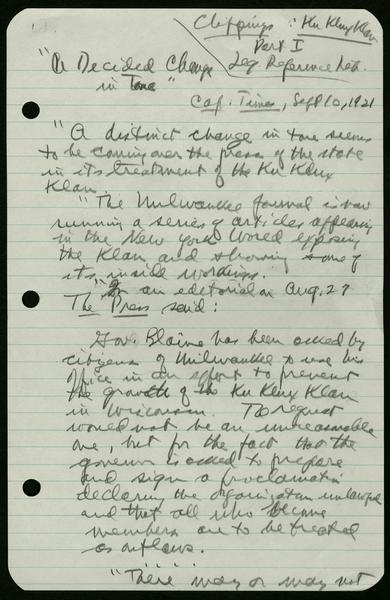 Clippings : Ku Klux Klan
Part I
Leg Reference Lib.
"A Decided Change
in Tone"
Cap. Times, Sept 10, 1921
"A distinct change in tone seems
to be coming over the press of the state
in its treatment of the Ku Klux
Klan.
"The Milwaukee Journal is now
running a series of articles appearing
in the New York World exposing
the Klan and showing some of
its inside workings.
"In an editorial on Aug. 27
The Press said:
Gov. Blaine has been asked by
citizens of Milwaukee to use his
office in an effort to prevent
the growth of the Ku Klux Klan
in Wisconsin. The request
would not be an unreasonable
one, but for the fact that the
governor is asked to prepare
and sign a proclamation
declaring the organization unlawful
and that all who become
members are to be treated
as outlaws.
"There may or may not